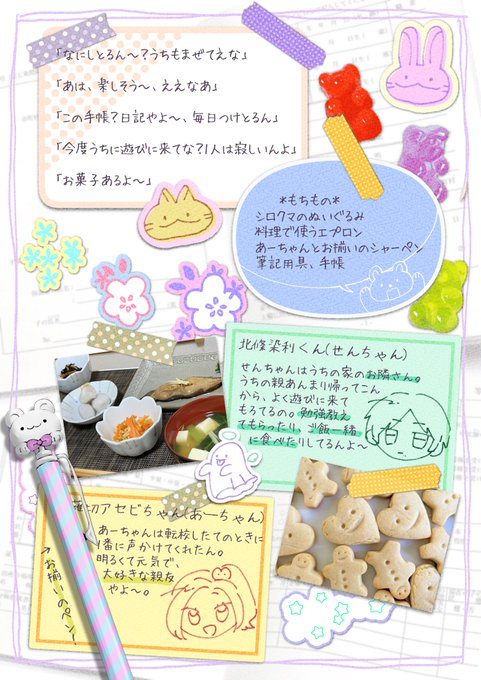 「なにしとるん〜?うちもまぜてえな」
「あは、楽しそう〜、ええなあ」
「この手帳?日記やよ〜、毎日つけとるん」
「今度うちに遊びに来てな?1人は寂しいんよ」
「お菓子あるよ〜」
*もちもの*
シロクマのぬいぐるみ
料理で使うエプロン
あーちゃんとお揃いのシャーペン
筆記用具、手帳
北條染利くん(せんちゃん)
せんちゃんはうちの家のお隣さん。
うちの親あんまり帰ってこん
から、よく遊びに来て
もろてるの。勉強教え
てもらったり、ご飯一緒
に食べたりしてるんよ〜
切アセビちゃん(あーちゃん)
あーちゃんは転校したてのときに
1番に声かけてくれたん。
明るくて元気で、
大好きな親友
やよ〜。
→お揃いのペン!